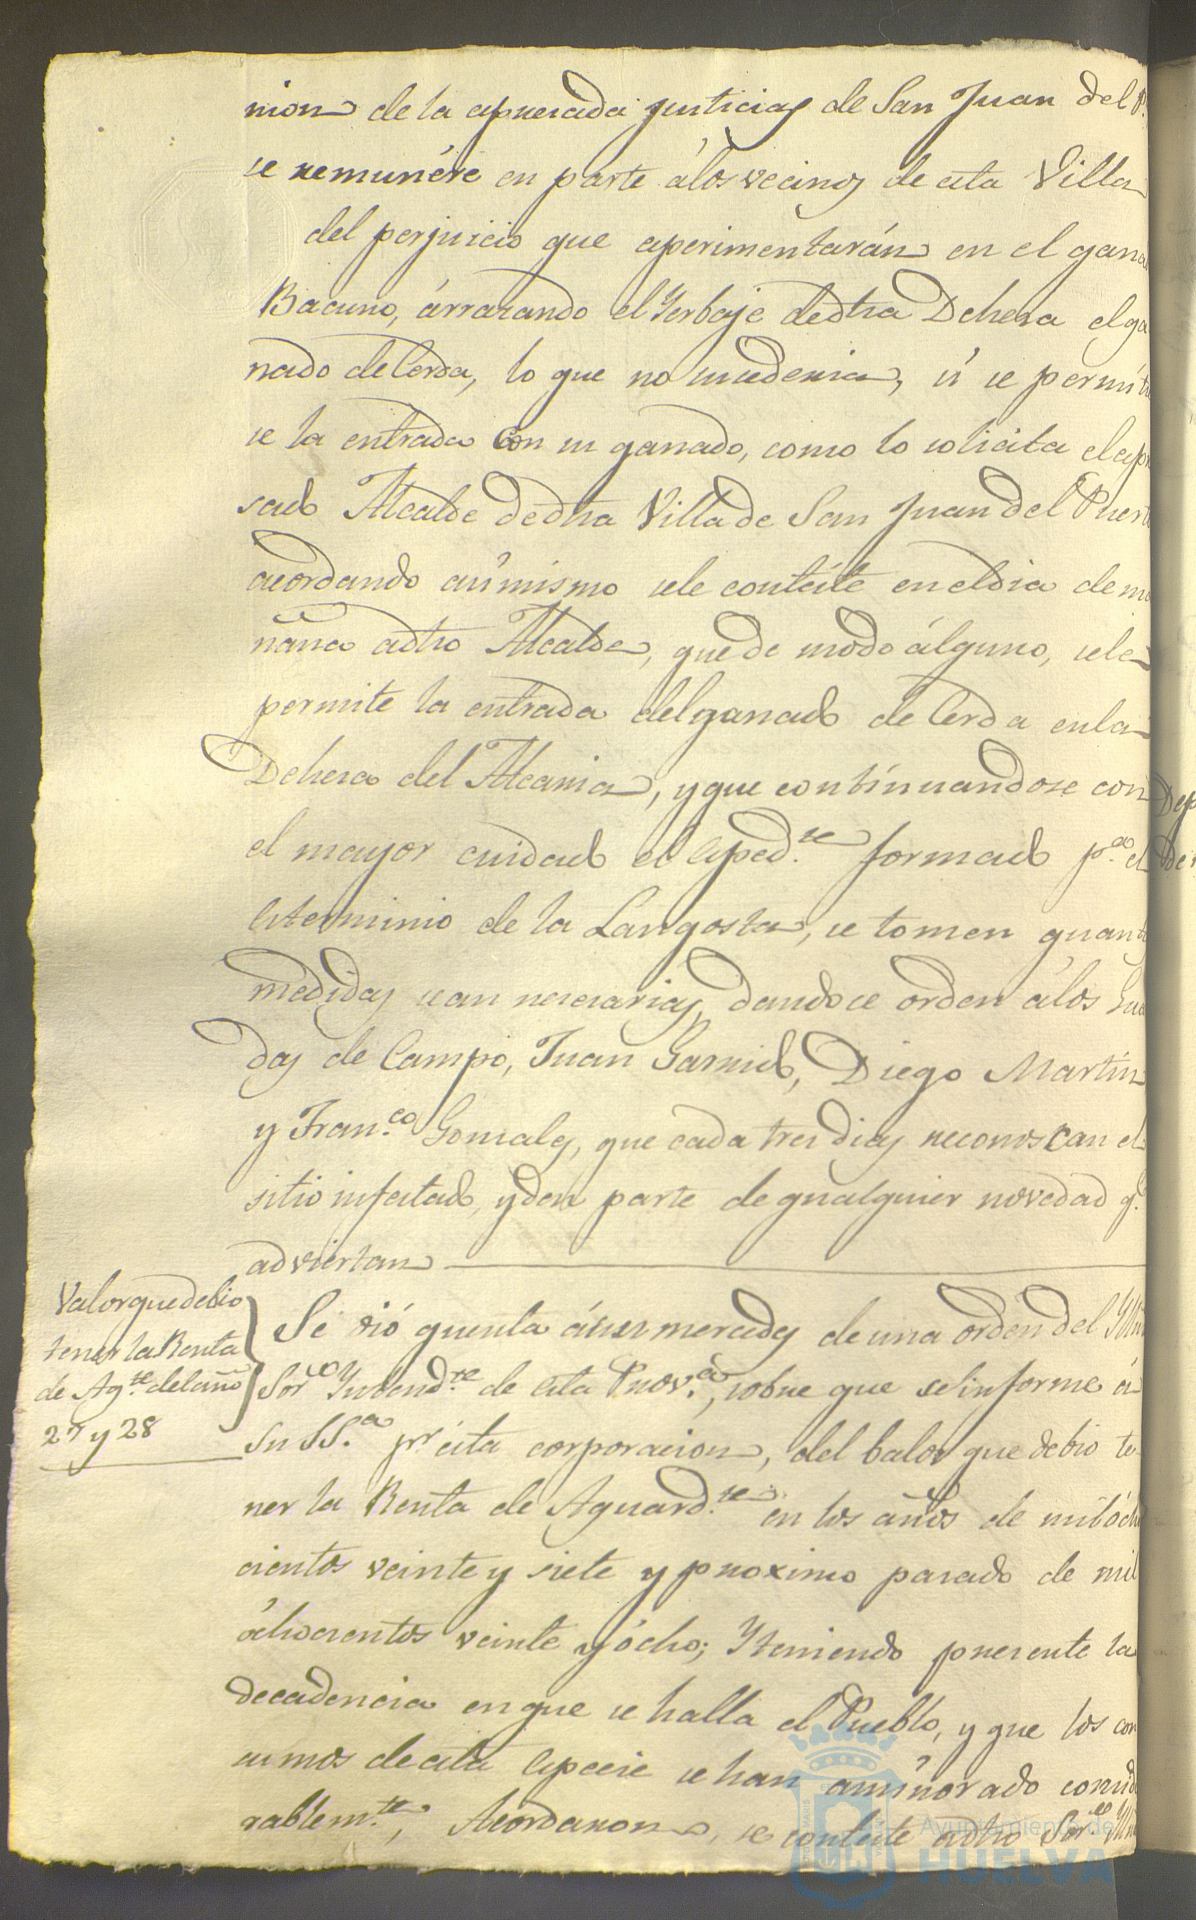 nion de la apresada justicias de San Juan del P.
se remunére en parte álos vecinos de esta Villa
del perjuicio que esperimentarán en el gana
Bacuno, árrazando el Yerbaje dedha Dehesa elga
nado de Cerda, lo que no sucederia, si se permitie
se la entrada con su ganado, como lo solicita elespre
sado Alcalde dedha Villa de San Juan del Puerto
acordando asímismo sele contéste eneldia dema
ñana adho Alcalde, quede modo álguno, sele
permite la entrada delganado de Cerda enla
Dehesa del Alcania, yque contínuandose con
el mayor cuidado el Esped.te formado p.a el
Esterminio de la Langosta, se tomen quant
medidas sean necesarias, dandose orden álos Gua
das de Campo, Juan Garrido, Diego Martín
y Fran.co Gonsales, que cada tres dias reconoscan el
sitio infestado, yden parte de qualquier novedad q.
adviertan
Valorquedebio
tener la Renta
de Ag.te delaño
27 y 28
Se dió quenta ásus mercedes de una orden del Yllmo
Sor Yntend.te de esta Prov.a, sobre que seinforme á
Su SS.a pr esta corporacion, del balor que debio te
ner la Renta de Aguard.te en los años de milócho
cientos veinte y siete y proximo pasado de mil
óchocientos veinte yócho; Yteniendo presente la
decadencia enque se halla el Pueblo, y que los con
sumos deesta Especie se han aminorado conside
rablem.te, Acordaron, se conteste adho Sor Yllmo
Ayuntamiento de
HUELVA